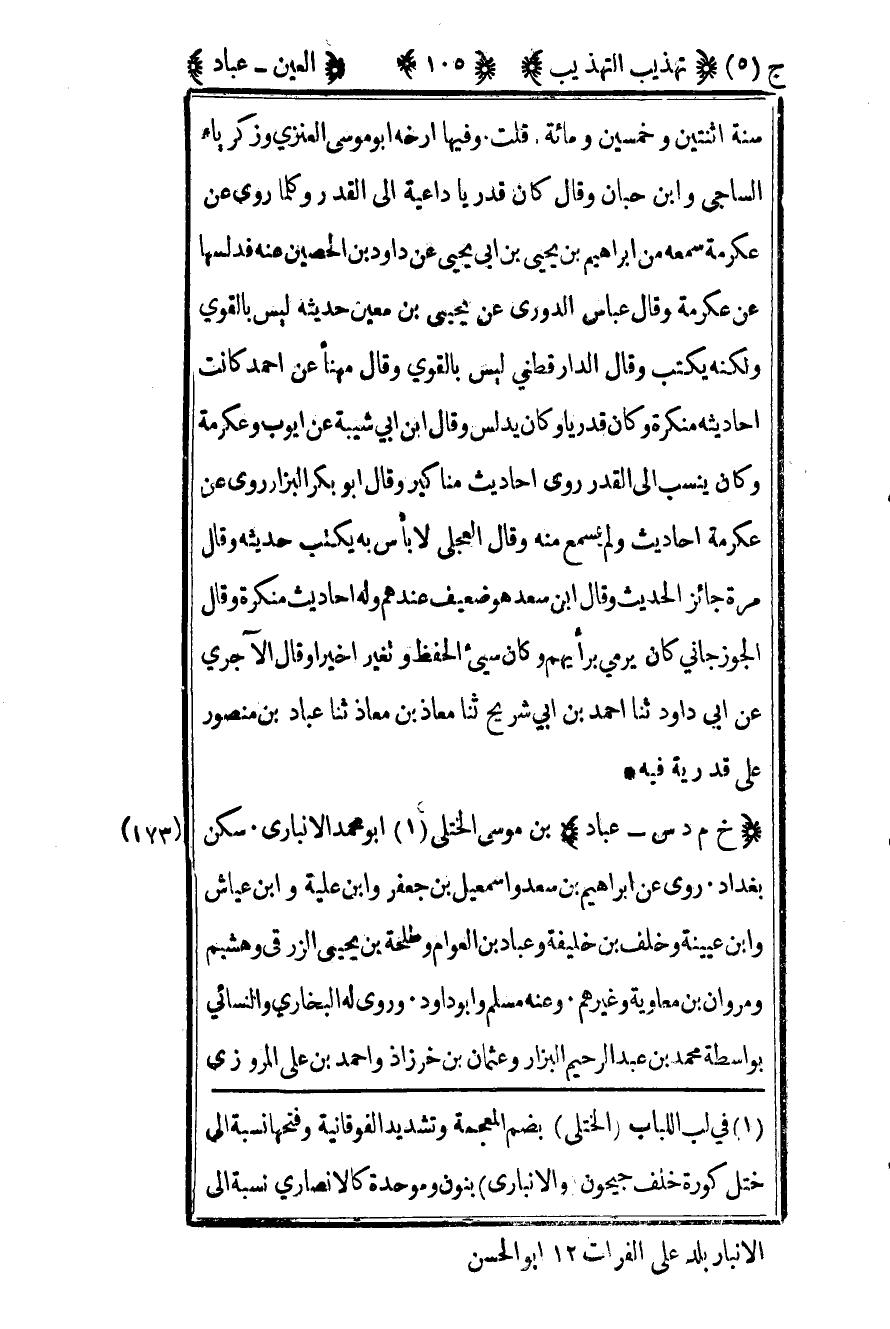 ج (٥) ﴿ تهذيب التهذيب ﴾ ﴿ ١٠٥ ﴾ ﴿ العين ـ عباد ﴾
سنة اثنتين و خمسين و مائة . قلت . وفيها ارخه ابو موسى العنزي وزكرياء
الساجى وابن حبان وقال كان قدريا داعية الى القدر وكلما روى عن
عكرمة سمعه من ابراهيم بن يحيى بن ابى يحيى عن داود بن الحصين عنه فدلسها
عن عكرمة وقال عباس الدورى عن يحيى بن معين حديثه ليس بالقوي
ولكنه يكتب وقال الدارقطني ليس بالقوي وقال مهنأ عن احمد كانت
احاديثه منكرة وكان قدريا وكان يدلس وقال ابن ابي شيبة عن ايوب وعكرمة
وكان ينسب الى القدر روى احاديث مناكير وقال ابو بكر البزار روى عن
عكرمة احاديث ولم يسمع منه وقال العجلى لا بأس به يكتب حديثه وقال
مرة جائز الحديث وقال ابن سعد هو ضعيف عندهم وله احاديث منكرة وقال
الجوزجاني كان يرمي برأيهم وكان سيئ الحفظ و تغير اخيرا وقال الآجري
عن ابى داود ثنا احمد بن ابي شريح ثنا معاذ بن معاذ ثنا عباد بن منصور
على قدرية فيه •
﴿ خ م د س ـ عباد ﴾ بن موسى الختلى (١) ابو محمد الانبارى . سكن (١٧٣)
بغداد . روى عن ابراهيم بن سعد واسمعيل بن جعفر وابن علية و ابن عياش
وابن عيينة وخلف بن خليفة وعباد بن العوام وطلحة بن يحيى الزرقى وهشيم
ومروان بن معاوية وغيرهم . وعنه مسلم وابو داود . وروى له البخاري والنسائي
بواسطة محمد بن عبد الرحيم البزار وعثمان بن خرزاذ واحمد بن على المروزي
(١) في لب اللباب (الختلى) بضم المعجمة وتشديد الفوقانية وفتحها نسبة الى
ختل كورة خلف جيحون (والانبارى) بنون وموحدة كالانصاري نسبة الى
الانبار بلد على الفرات ١٢ ابو الحسن